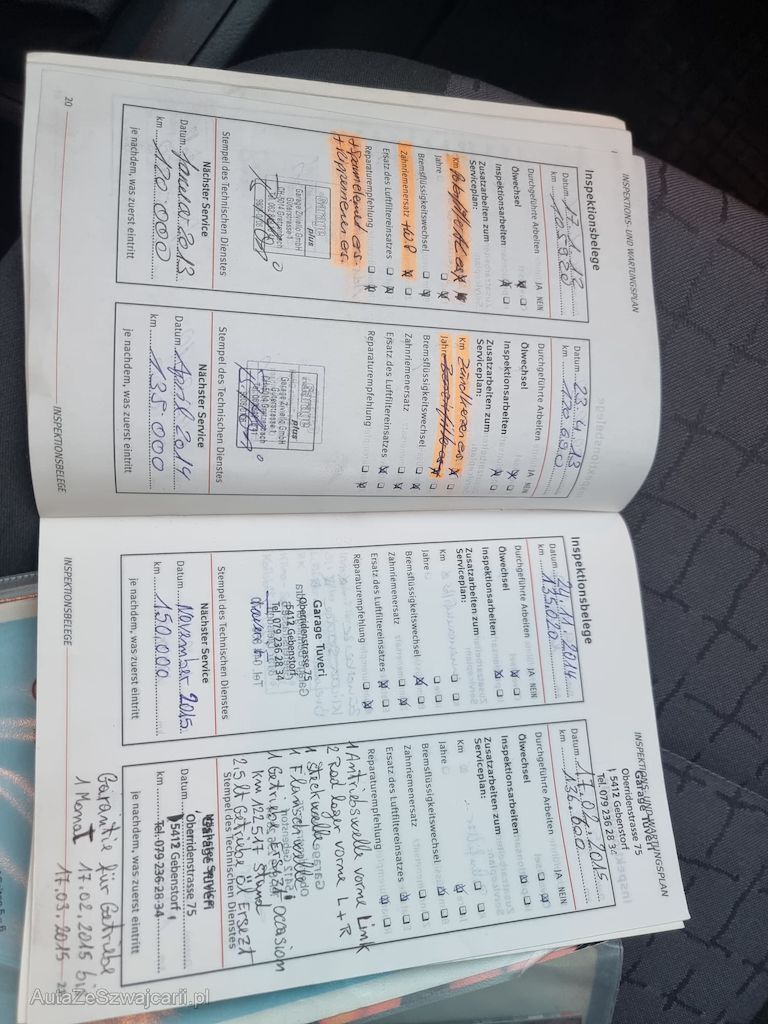 INSPEKTIONS- UND WARTUNGSPLAN
Inspektionsbelege
Datum 17.1.12
km 105920
Durchgeführte Arbeiten JA NEIN
Ölwechsel
Inspektionsarbeiten
Zusatzarbeiten zum
Serviceplan:
Km
Jahre
Bremsflüssigkeitswechsel
Zahnriemenersatz + WP
Ersatz des Luftfiltereinsatzes
Reparaturempfehlung
plus
Garage Zuvallo GmbH
Güterstrasse 1
CH-5014 Gretzenbach
Stempel des Technischen Dienstes
Nächster Service
Datum Januar 2013
km 120 000
je nachdem, was zuerst eintritt
20
Datum 23.4.13
km 120 660
Durchgeführte Arbeiten JA NEIN
Ölwechsel
Inspektionsarbeiten
Zusatzarbeiten zum
Serviceplan:
Km
Jahre
Bremsflüssigkeitswechsel
Zahnriemenersatz
Ersatz des Luftfiltereinsatzes
Reparaturempfehlung
plus
Garage Zuvallo GmbH
Güterstrasse 1
Stempel des Technischen Dienstes
Nächster Service
Datum April 2014
km 135 000
je nachdem, was zuerst eintritt
INSPEKTIONSBELEGE
Inspektionsbelege
Datum 24.11.2014
km 135,020
Durchgeführte Arbeiten JA NEIN
Ölwechsel
Inspektionsarbeiten
Zusatzarbeiten zum
Serviceplan:
Km
Jahre
Bremsflüssigkeitswechsel
Zahnriemenersatz
Ersatz des Luftfiltereinsatzes
Reparaturempfehlung
Garage Tuveri
Oberriedenstrasse 75
5412 Gebenstorf
Tel. 079 236 28 34
Stempel des Technischen Dienstes
Nächster Service
Datum November 2015
km 150,000
je nachdem, was zuerst eintritt
INSPEKTIONSBELEGE
INSPEKTIONS- UND WARTUNGSPLAN
Garage Tuveri
Oberriedenstrasse 75
5412 Gebenstorf
Tel. 079 236 28 34
Datum 17.02.2015
km 136.600
Durchgeführte Arbeiten JA NEIN
Ölwechsel
Inspektionsarbeiten
Zusatzarbeiten zum
Serviceplan:
Km
Jahre
Bremsflüssigkeitswechsel
Zahnriemenersatz
Ersatz des Luftfiltereinsatzes
Reparaturempfehlung
1 Antriebswelle vorne Link
2 Rad lager vorne L + R
1 Steckwelle
1 Flanschwelle
1 Getriebe Ersezt occasion
km 122517 Stand
2.5 lt Getriebe öl Ersezt
Stempel des Technischen Dienstes
Datum
Oberriedenstrasse 75
5412 Gebenstorf
km
Tel. 079 236 28 34
je nachdem, was zuerst eintritt
Garantie für Getriebe
1 Monat 17.02.2015 bis
17.03.2015
AutaZeSzwajcarii.pl